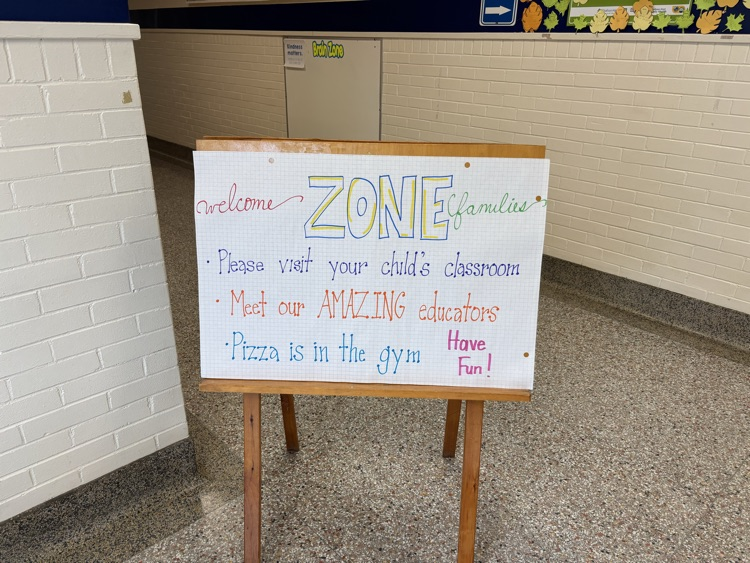 Kindness matters.
Brain Zone
welcome ZONE families
· Please visit your child's classroom
· Meet our AMAZING educators
· Pizza is in the gym
Have
Fun!